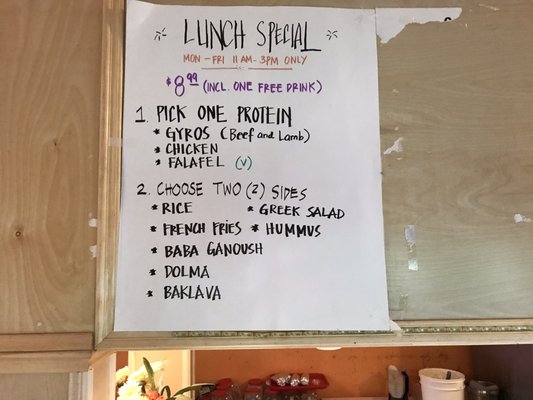 LUNCH SPECIAL
MON - FRI 11 AM - 3PM ONLY
$8.99 (INCL. ONE FREE DRINK)
1. PICK ONE PROTEIN
* GYROS (Beef and Lamb)
* CHICKEN
* FALAFEL (V)
2. CHOOSE TWO (2) SIDES
* RICE * GREEK SALAD
* FRENCH FRIES * HUMMUS
* BABA GANOUSH
* DOLMA
* BAKLAVA